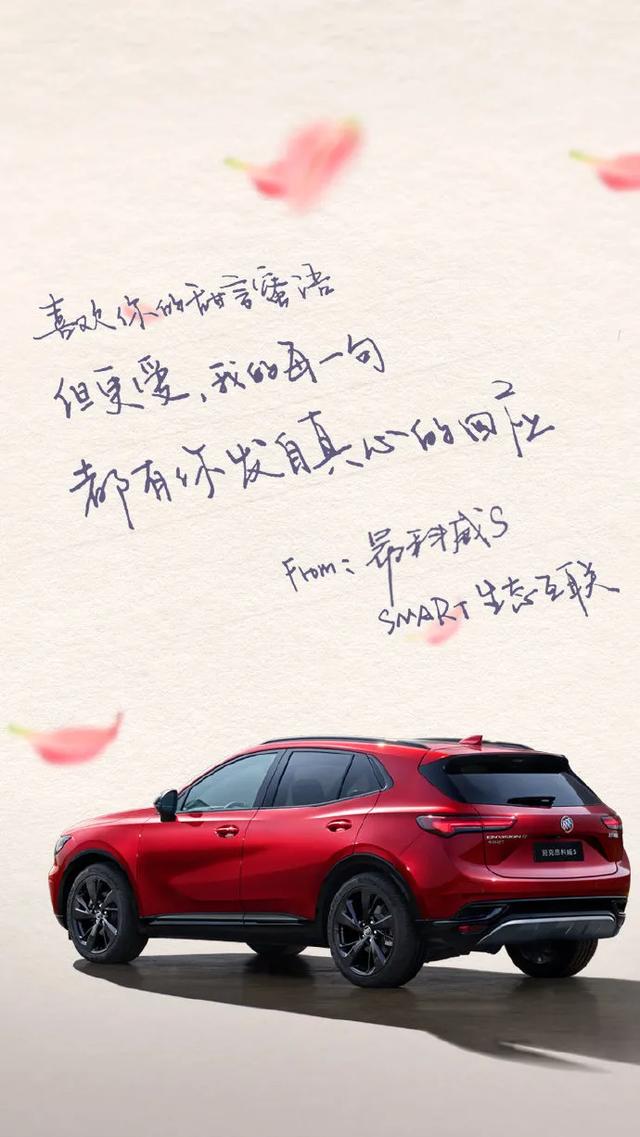 喜欢你的甜言蜜语
但更爱，我的每一句
都有你发自真心的回应
From：昂科威S
SMART生态互联
ENVISION S
别克昂科威S